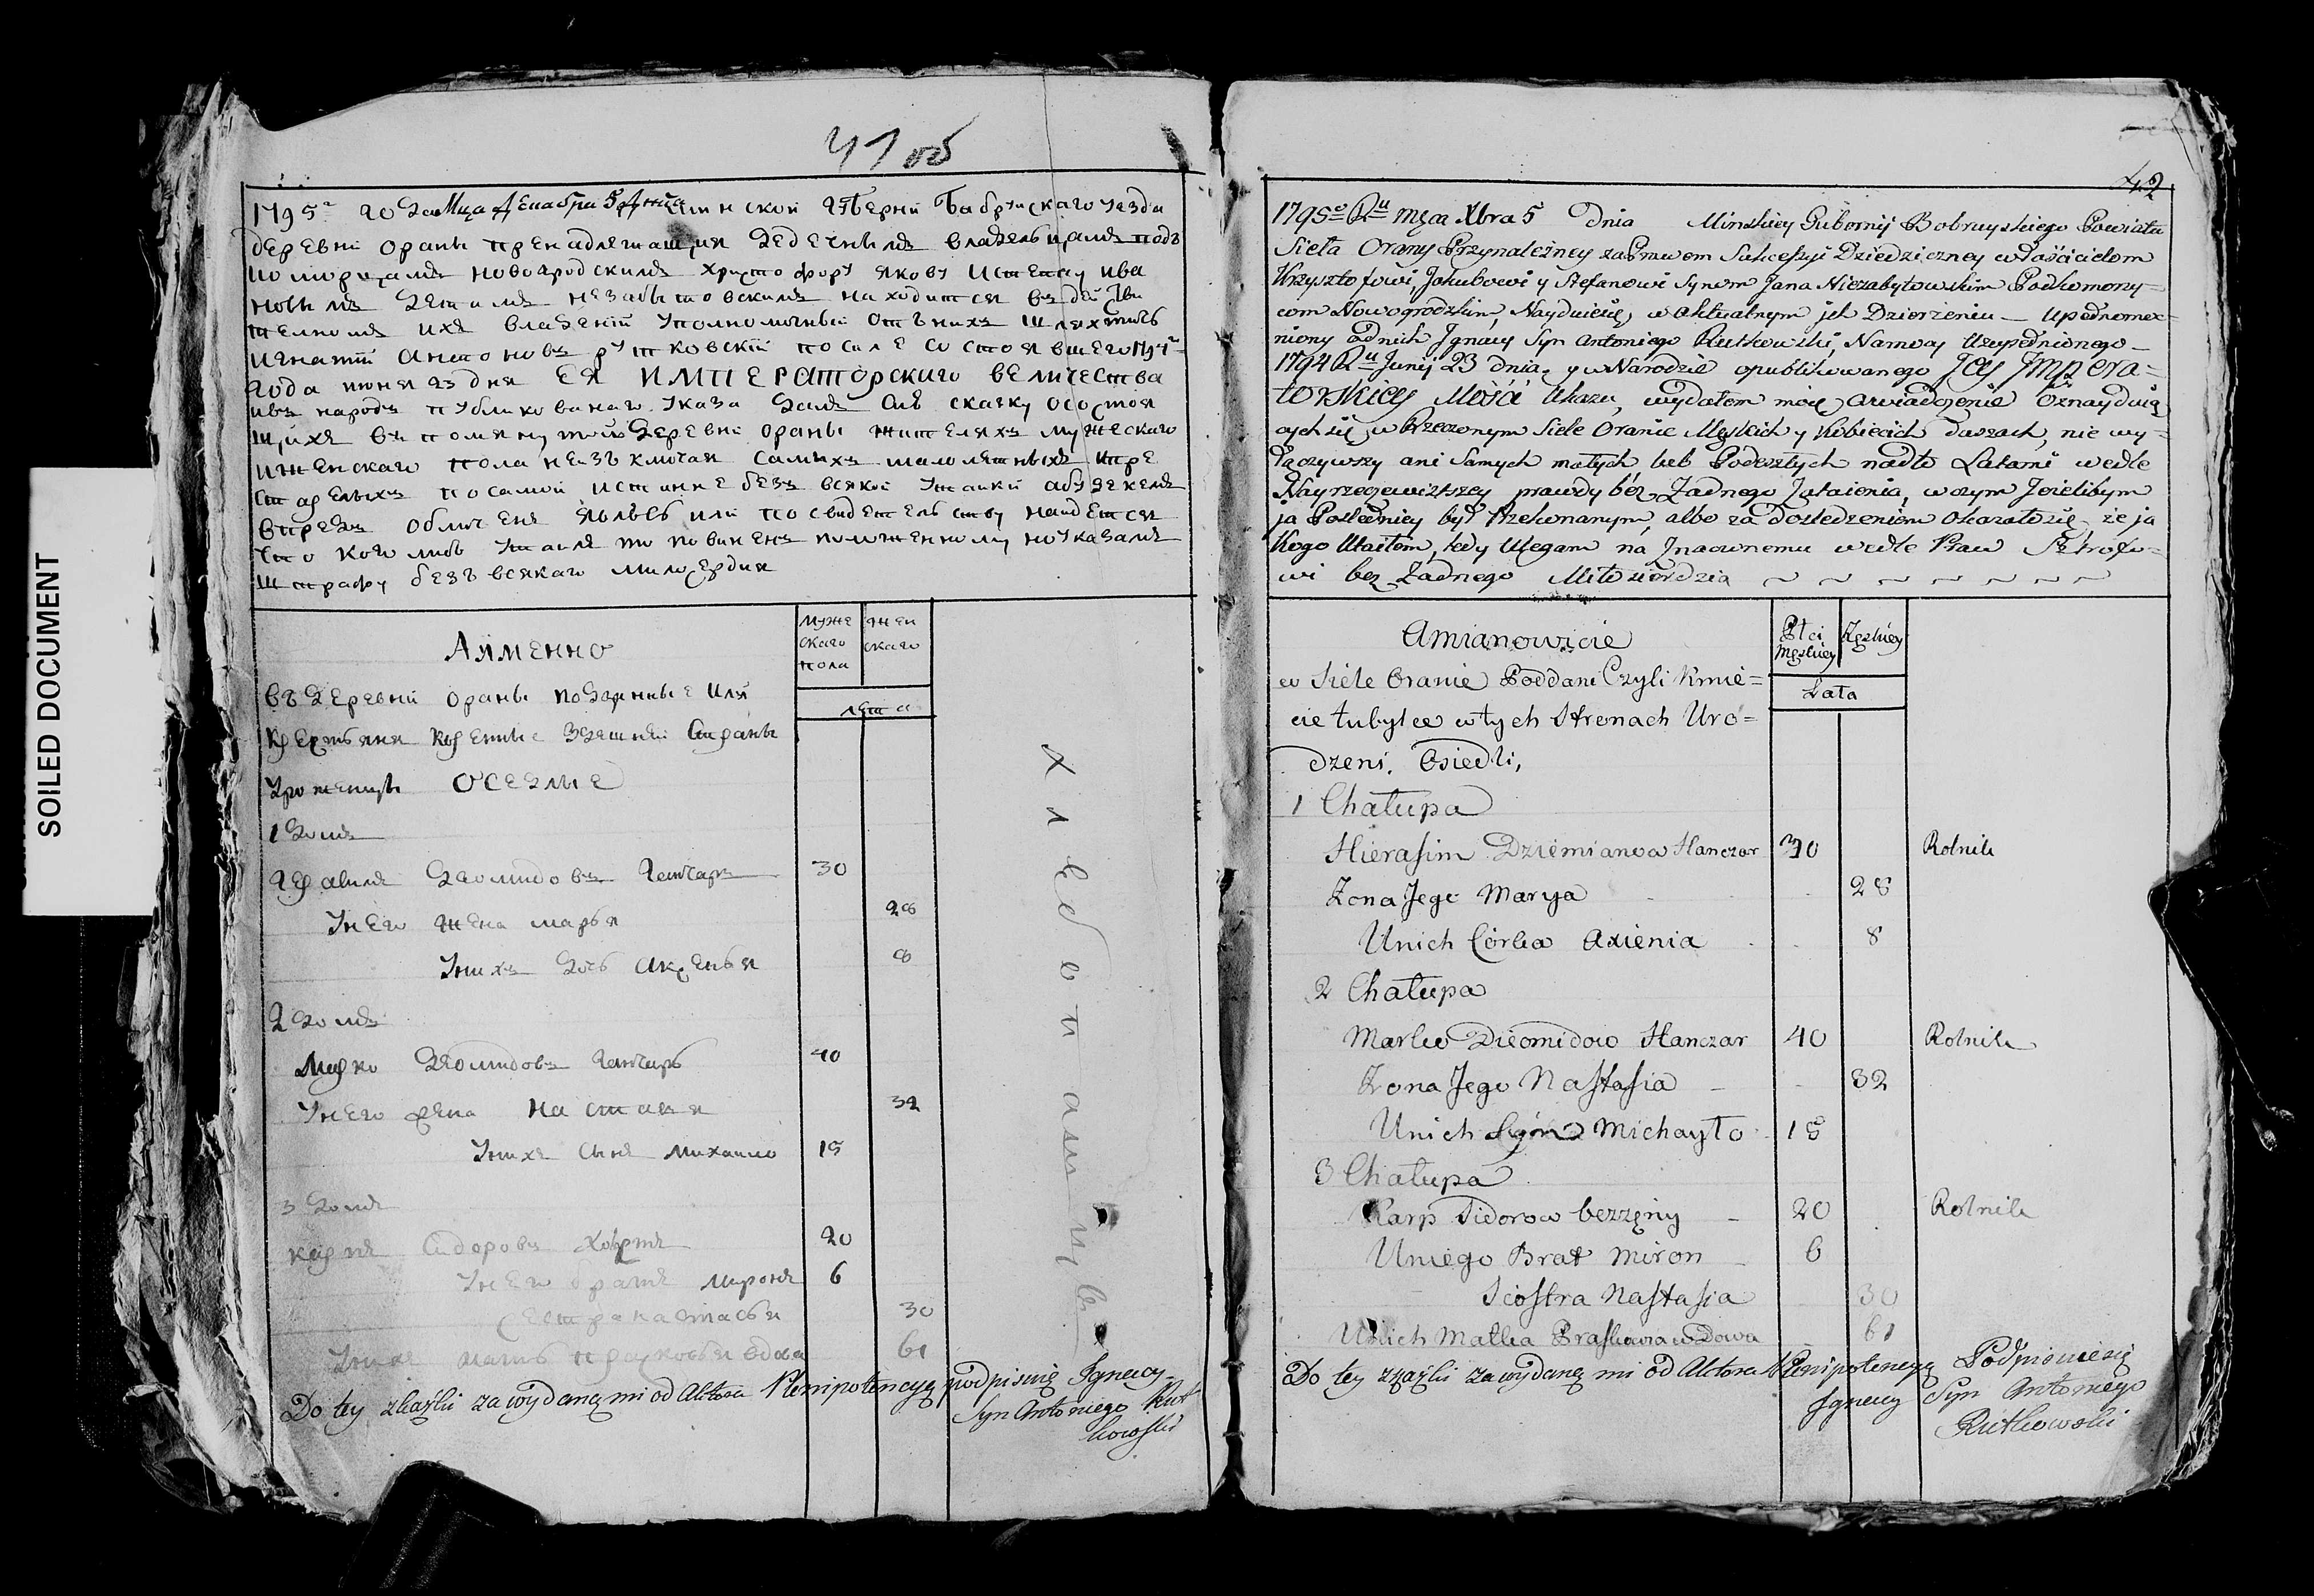 SOILED DOCUMENT
41 об
1795г года Мца Декабря 5 дния Минской губерніи Бабруискаго уезда
деревни ораны пренадлежащия Дедечнымъ владельцамъ подъ
коморицамъ новогродскимъ христофору якову и степану ива
новымъ детямъ незабытовскимъ находится въ действи
телномъ ихъ владеніи уполномочный отъ нихъ шляхтичъ
игнатій антоновъ рутковскій после состоявшего 1794г
года июня 23 дня ЕЯ ИМПЕРАТОРСКАГО величества
ивъ народъ публикованаго указа далъ сию скаску осостоя
щихъ въ помянутой деревни ораны жителяхъ мужескаго
иженскаго пола неизъключая самыхъ малолетныхъ ипре
старелыхъ посамой истинне безъ всякой утайки абуде кемъ
впредъ обличенъ явлюсь или по свидетельству найдется
что кого либъ утаилъ то повиненъ положенному поуказамъ
штрафу безъ всякаго милосердия
Аимянно
муже
скаго
пола
жен
скаго
лета
въ деревни ораны подданые или
крестьяня коренные здешней страны
уроженцы оседлые
1 домъ
герасимъ диомидовъ ганчаръ 30
унего жена марья 28
унихъ дочь аксенья 8
2 домъ
Марко диомидовъ ганчаръ 40
унего жена настасия 32
унихъ сынъ михаило 15
3 домъ
карпъ сидоровъ 20
унего братъ миронъ 6
сестра настасья 30
унихъ мать прасковья вдова 61
хлебопашцы
Do tey skaski za wydaną mi od Aktora Plenipotencyą podpisuię Ignacy
Syn Antoniego Rut
kowski
42
1795o Ru Mca Xbra 5 Dnia Minskiey Gubernij Bobruyskiego Powiatu
Sieła Orany Przynależney za Prawem Sukcessyi Dziedziczney właścicielom
Krzysztofowi, Jakubowi y Stefanowi Synom Jana Niezabytowskim Podkomorzy=
com Nowogrodzkim, Nayduięcę w aktualnym ich Dzierżeniu — upełnomoc=
niony od nich Ignacy Syn Antoniego Rutkowski, Namocy Uzupełnionego
1794 Ru Junij 23 dnia, y w Narodzie opublikowanego Jey Impera=
torskiey Mości Ukazu, wydałem moię zawiadczenie oznayduią
cych się w Rzeczonym Siele Oranie Męskich y Kobiecich duszach, nie wy=
łączywszy ani Samych małych lub Podeszłych nadto Latami wedle
Nayrzeczewistszey prawdy bez Żadnego Zataienia, w czym Jeżelibym
ja Posledniey był Przekonanym, albo za dosledzeniem okazało się, że ja
Kogo Utaiłem, tedy Ulegam na Znaczonemu wedle Praw Sztrofo=
wi bez Żadnego Miłosierdzia
Amianowicie
Płci
Męskiey
Żęskiey
Lata
w Siele Oranie Poddani Czyli Kmie=
cie tubylce w tych Stronach Uro=
dzeni, Osiedli,
1 Chałupa
Hierasim Dziemianow Hanczar 30 Rolnik
Żona Jego Marya 28
Unich Córka Axienia 8
2 Chałupa
Marko Diomidow Hanczar 40 Rolnik
Żona Jego Nastasia 32
Unich Syn Michayło 15
3 Chałupa
Karp Sidorow bezżęny 20 Rolnik
Uniego Brat Miron 6
Siostra Nastasia 30
Unich Matka Praskowia wdowa 61
Do tey skaski za wydaną mi od Aktora Plenipotencyą Podpisuię się
Ignacy Syn Antoniego
Rutkowski